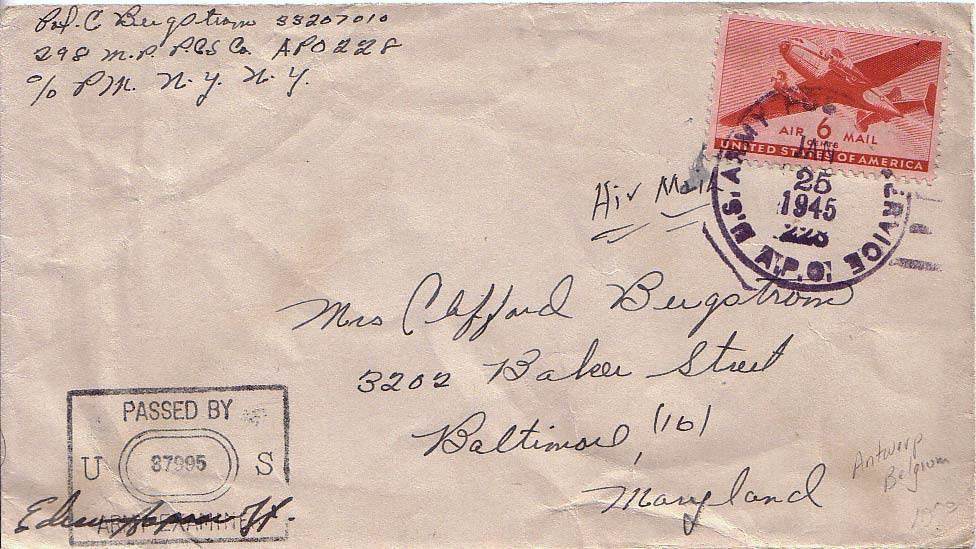 Pvt. C Bergstrom 33207010
298 M.P. PGS Co. APO 228
c/o P.M. N.Y. N.Y.
AIR 6 MAIL
CENTS
UNITED STATES OF AMERICA
U.S. ARMY SERVICE
JAN
25
1945
228
A.P.O.
Air Mail
Mrs Clifford Bergstrom
3202 Baker Street
Baltimore (16)
Maryland
PASSED BY
U 37995 S
ARMY EXAMINER
Antwerp
Belgium